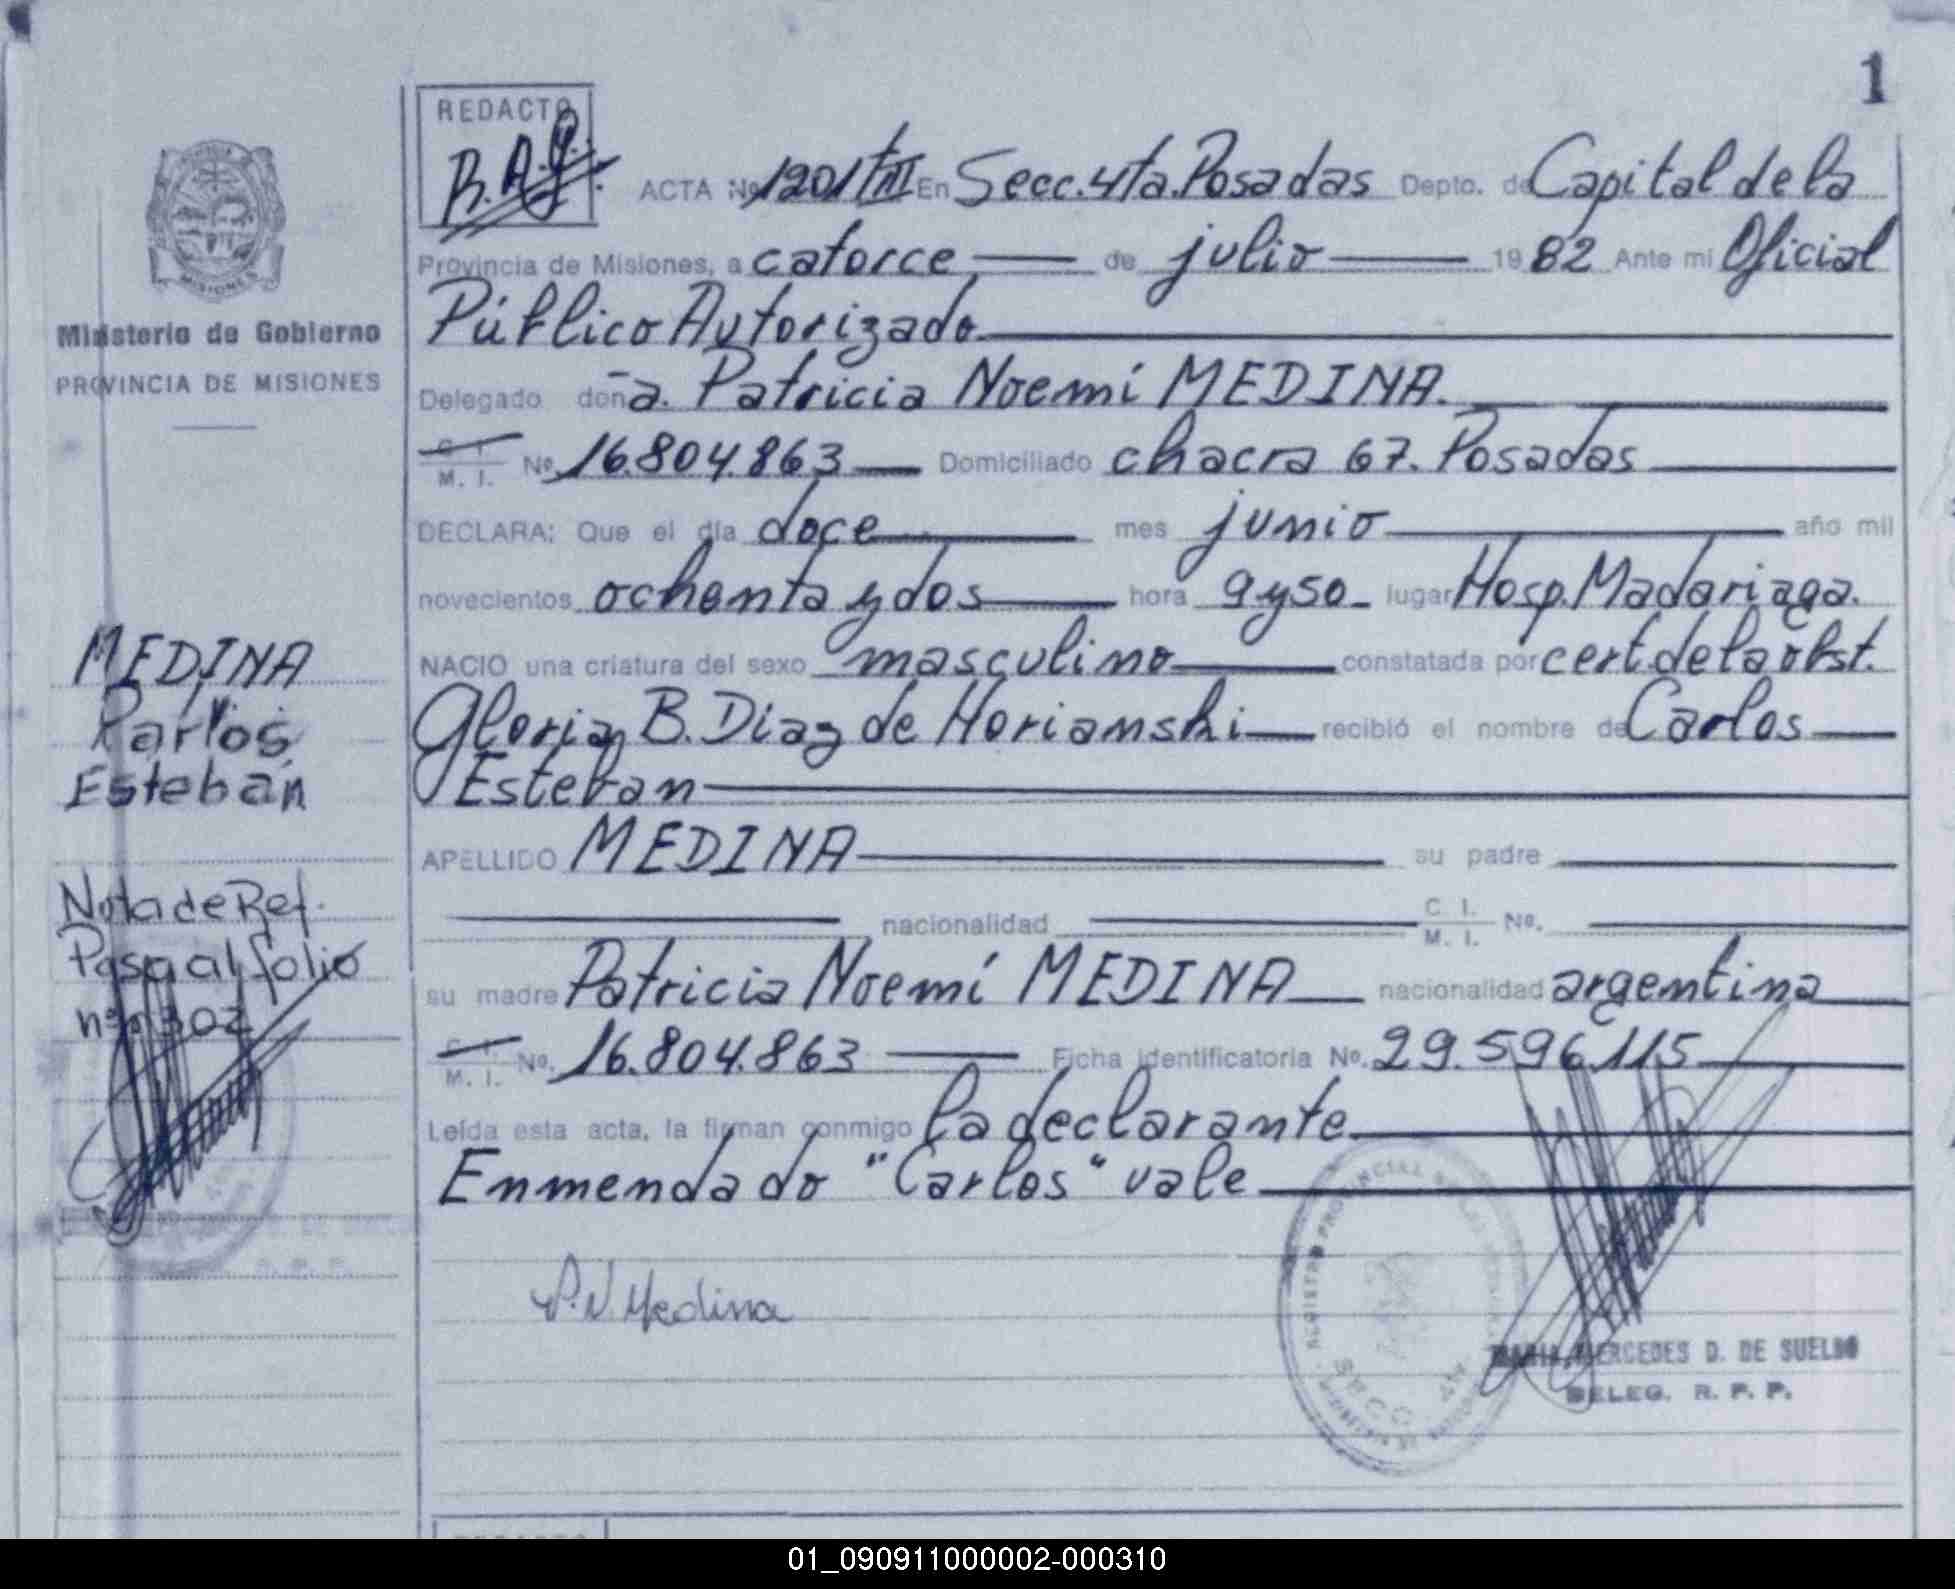 1
REDACTO
B.A.G.
ACTA Nº 1201/TIII En Secc. 4ta. Posadas Depto. de Capital de la
Provincia de Misiones, a catorce de julio 1982 Ante mi Oficial
Público Autorizado.
Delegado doña. Patricia Noemí MEDINA.
C. I.
M. I. Nº 16.804.863 Domiciliado chacra 67. Posadas
DECLARA: Que el día doce mes junio año mil
novecientos ochenta y dos hora 9 y 50 lugar Hosp. Madariaga.
NACIO una criatura del sexo masculino constatada por cert. de la obst.
Gloria B. Diaz de Horianski recibió el nombre de Carlos
Esteban
APELLIDO MEDINA su padre
nacionalidad C. I.
M. I. Nº.
su madre Patricia Noemí MEDINA nacionalidad argentina
C. I.
M. I. Nº. 16.804.863 Ficha identificatoria Nº. 29.596.115
Leída esta acta, la firman conmigo la declarante
Enmendado "Carlos" vale
P. N. Medina
MARIA MERCEDES D. DE SUELDO
DELEG. R. P. P.
REGISTRO PROVINCIAL DE LAS PERSONAS
SECC. 4ta
MISIONES
Ministerio de Gobierno
PROVINCIA DE MISIONES
MEDINA
Carlos
Esteban
Nota de Ref.
Pasa al folio
nº 302
01_090911000002-000310